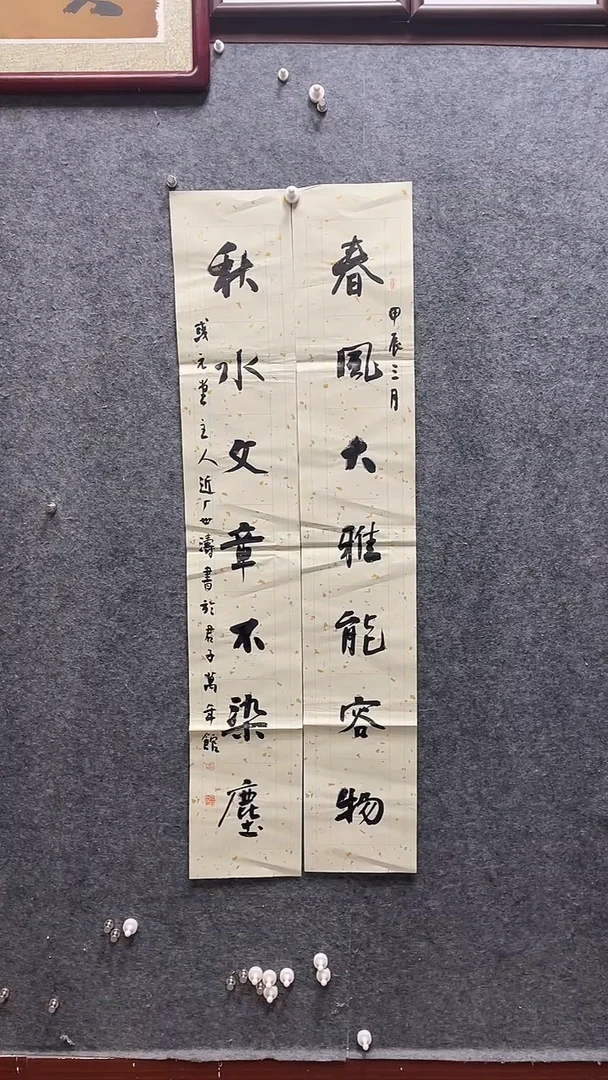 春風大雅能容物
甲辰三月
秋水文章不染塵
元堂主人近厂世濤書於君子萬年館